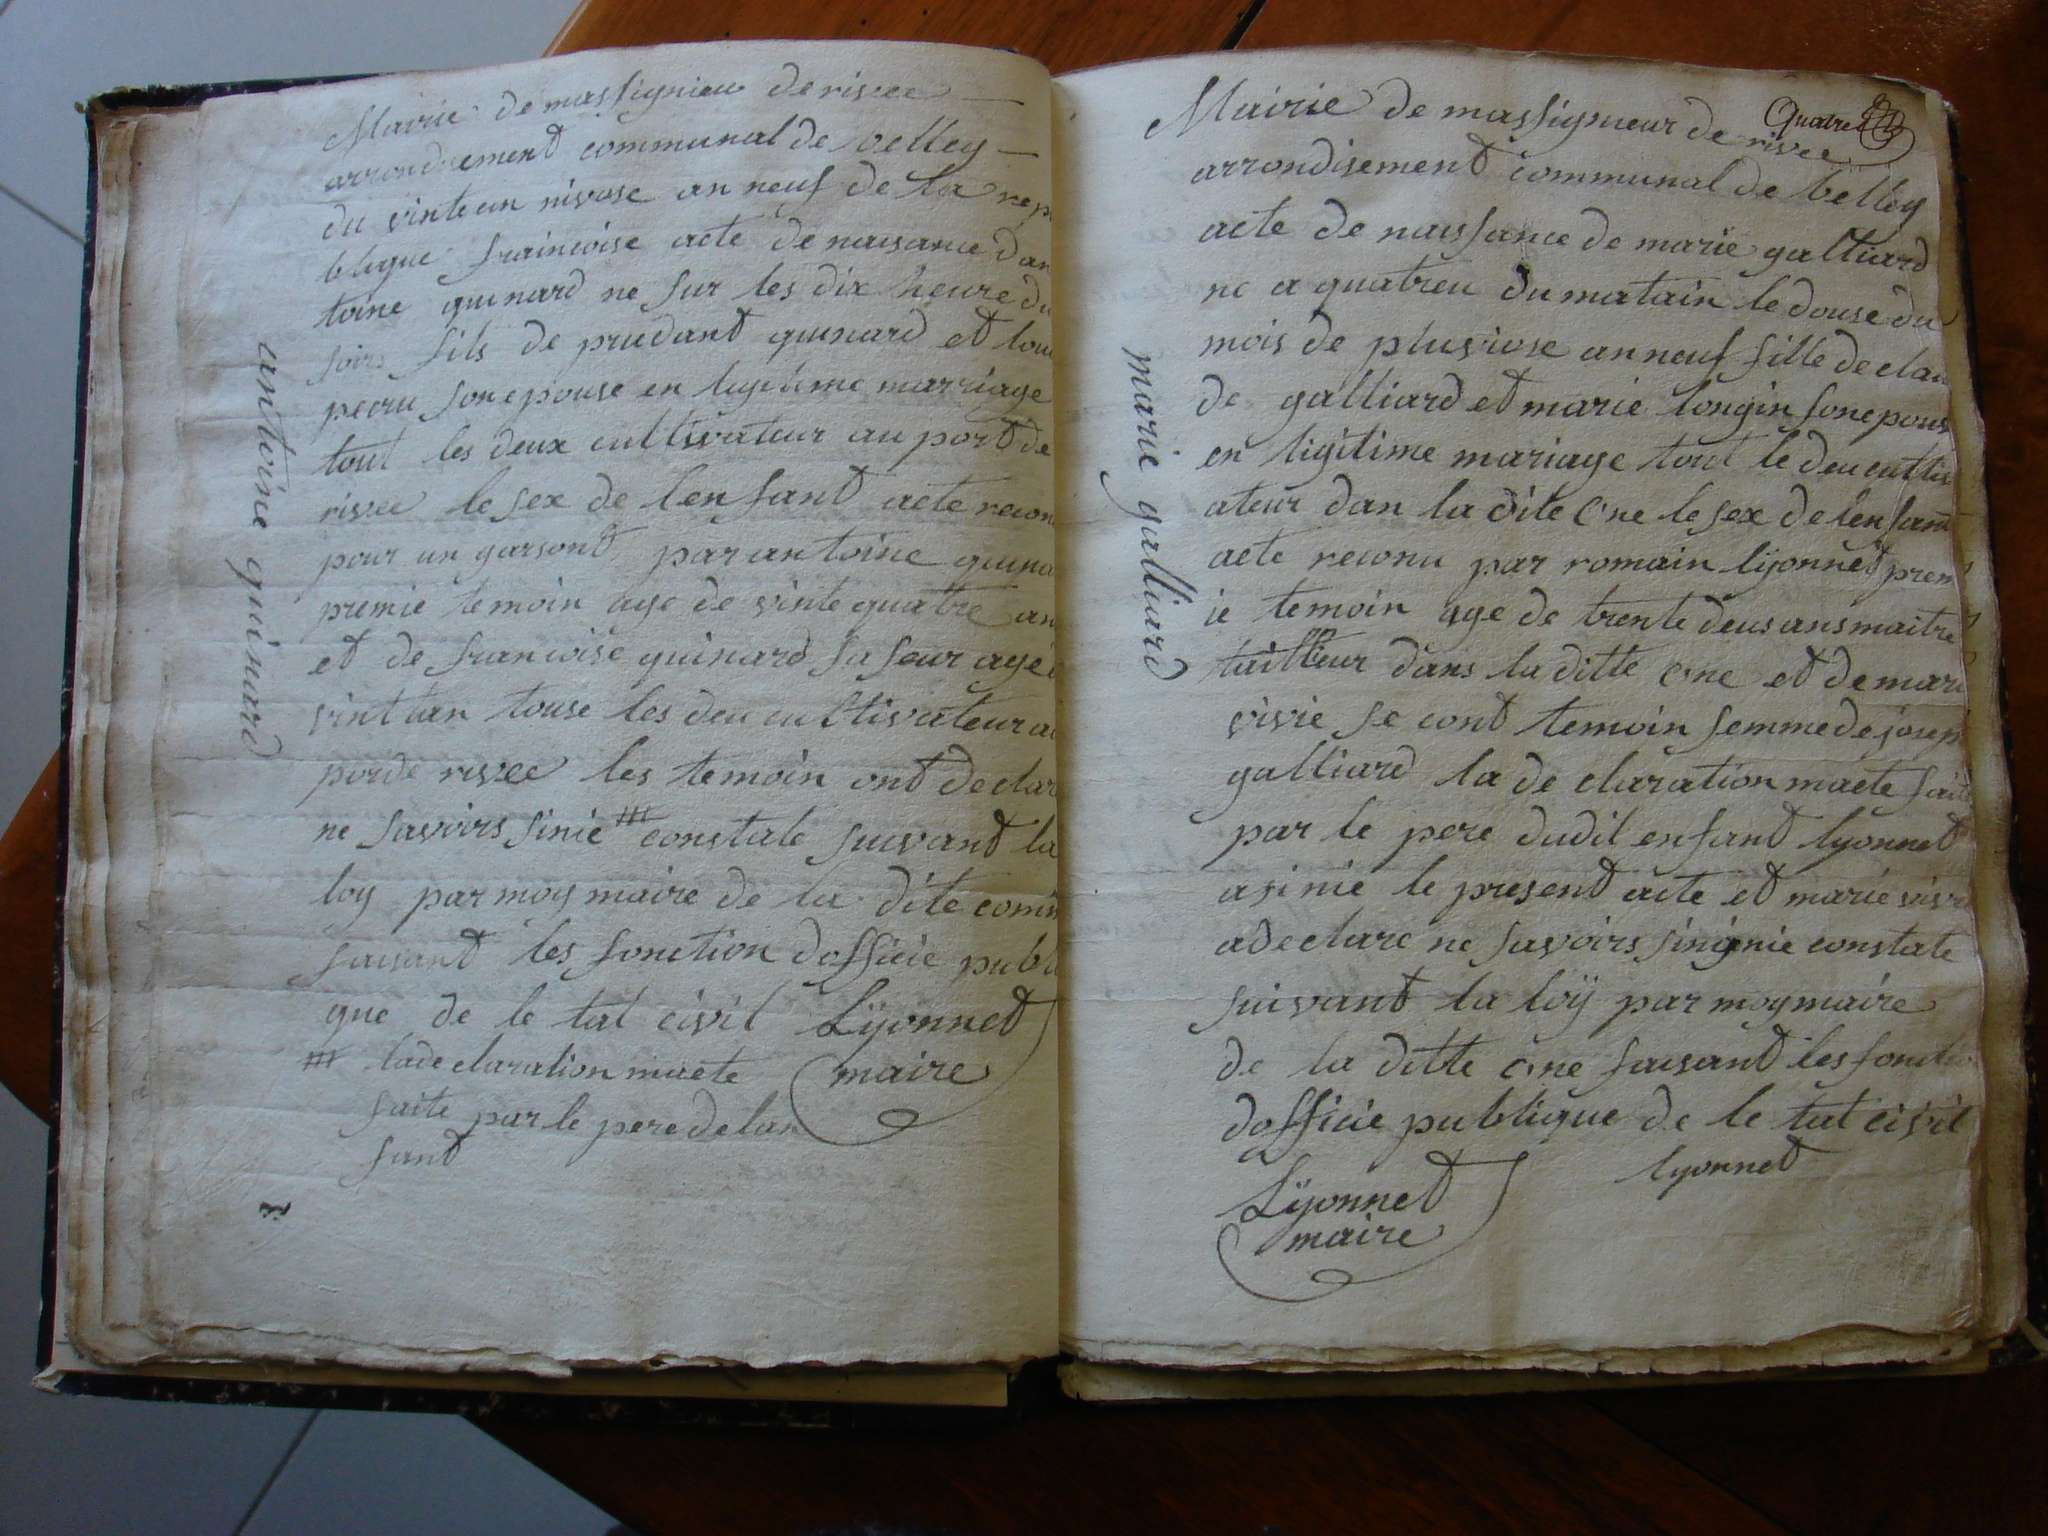 Mairie de massignieu de rivee
arrondisement communal de belley
du vinteun nivose an neuf de la repu
blique francoise acte de naisance dan
toine quinard ne sur les dix heure du
soirs fils de prudant quinard et loui
son epouse en legitime marriage
tout les deux cultivateur au port de
rivee le sex de lenfant acte recon
pour un garsont par antoine quina
premie temoin age de vinte quatre an
et de francoise quinard sa seur agé
vint tan touse les deu cultivateur au
porde rivee les temoin ont declar
ne savoirs sinie # constale suivant la
loy par moy maire de la dite comm
faisant les fonction dofficie publi
que de le tat civil Lÿonnet
maire
# la de claration macte
faite par le pere delan
fant
antoine quinard
Quatre
Mairie de massignieur de rivee
arrondisement communal de belley
acte de naissance de marie galliard
ne a quatreu du matain le douse du
mois de pluviose an neuf fille de clau
de galliard et marie longin son epous
en ligitime mariage tout le deu cultiv
ateur dan la dite Cne le sex de lenfant
acte reconu par romain lÿonnet prem
ie temoin age de trente deus ans maitre
tailleur dans la ditte Cne et de mari
vivie se cont temoin femme de josep
galliard la de claration macte fait
par le pere dudit enfant lyonnet
a sinie le present acte et marie vivi
a declare ne savoirs singnie constate
suivant la loÿ par moy maire
de la ditte Cne faisant les fonctio
dofficie publique de le tat civil
lyonnet
Lÿonnet
maire
marie galliard